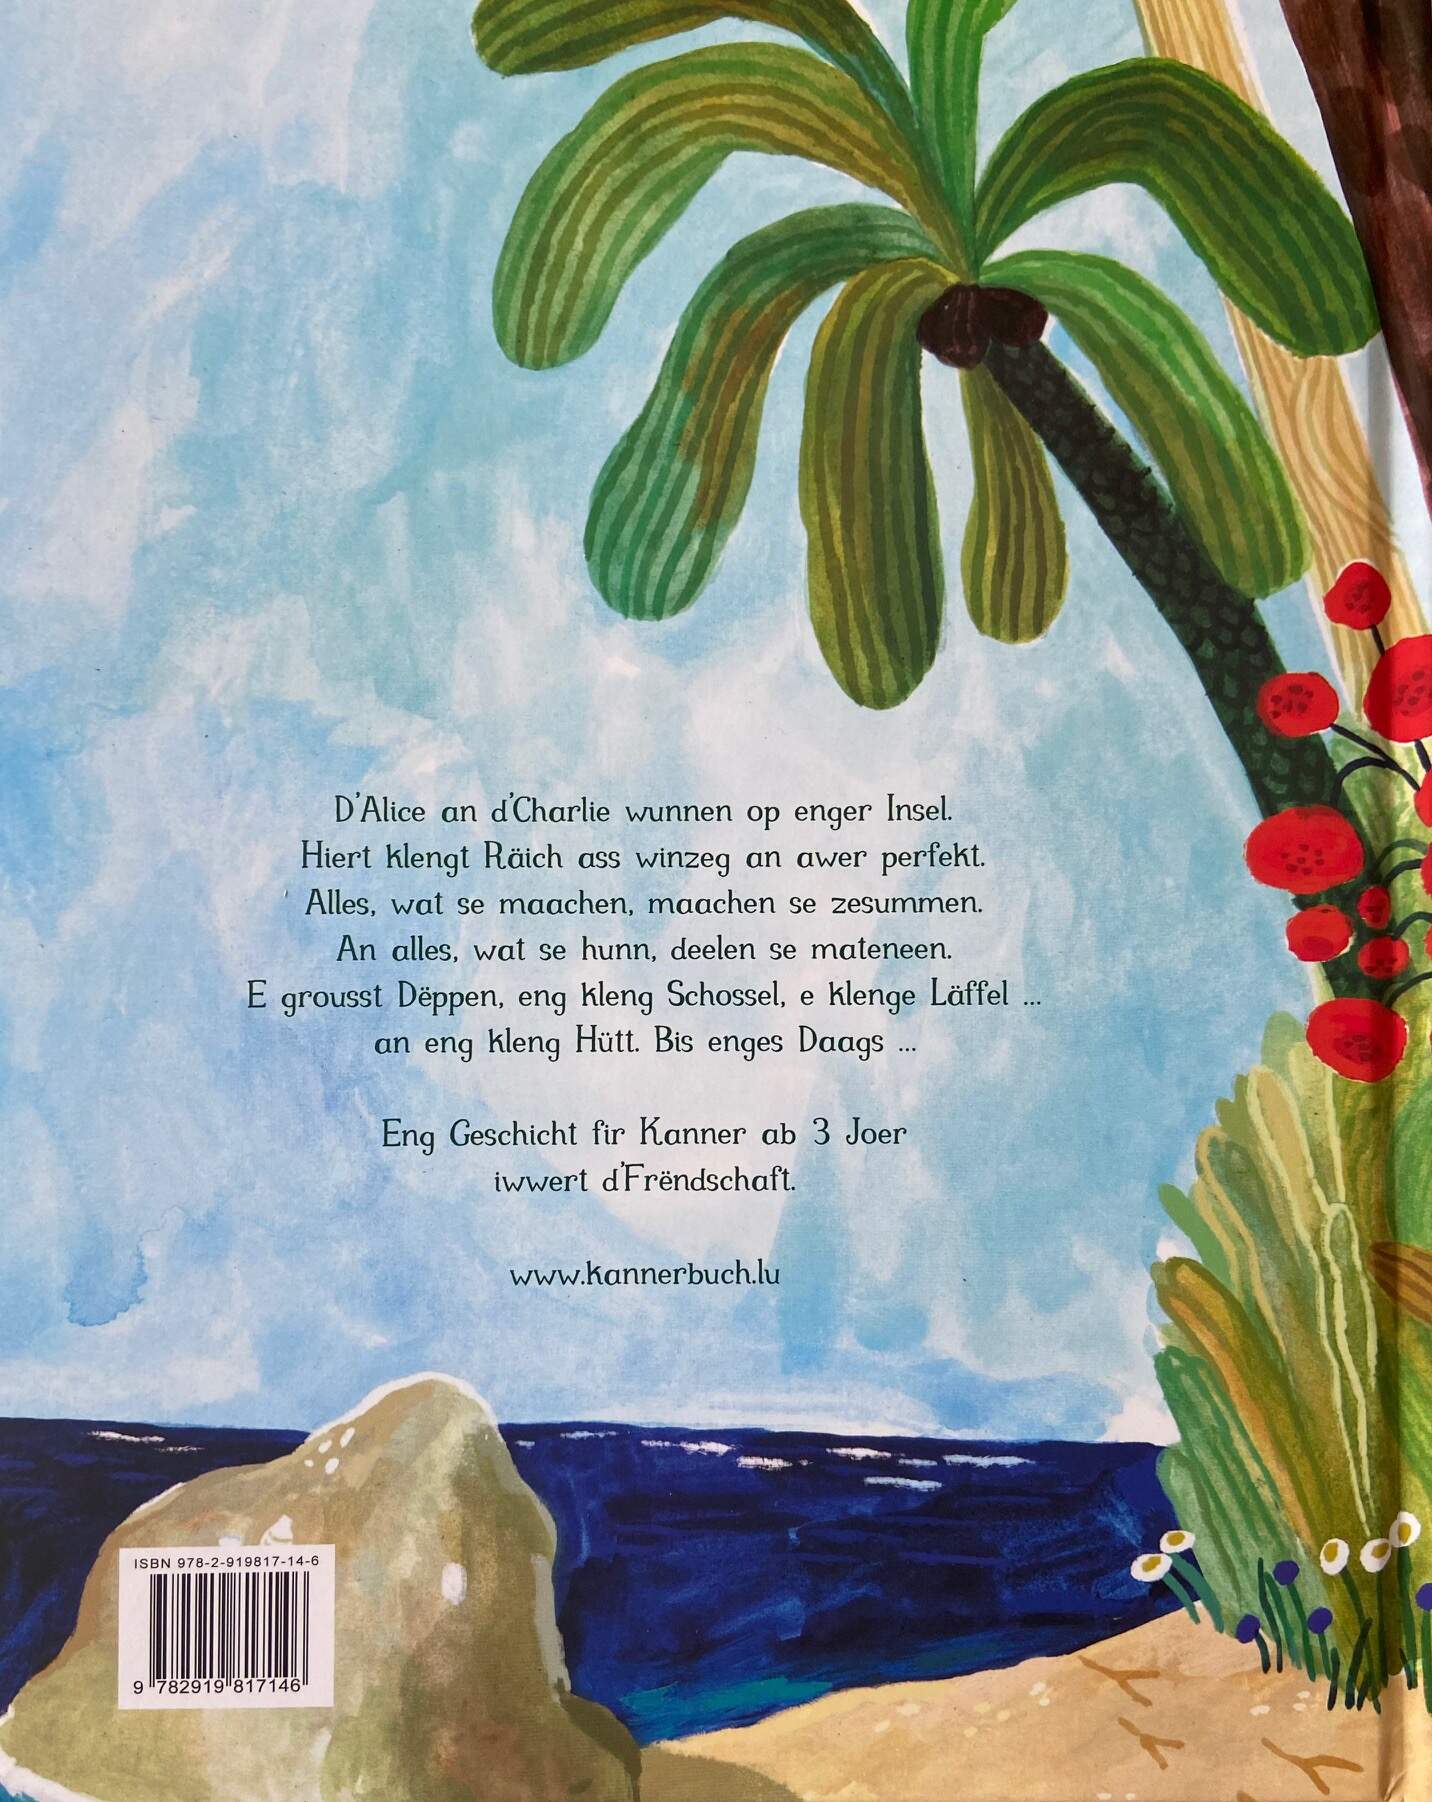 D'Alice an d'Charlie wunnen op enger Insel.
Hiert klengt Räich ass winzeg an awer perfekt.
Alles, wat se maachen, maachen se zesummen.
An alles, wat se hunn, deelen se mateneen.
E grousst Dëppen, eng kleng Schossel, e klenge Läffel ...
an eng kleng Hütt. Bis enges Daags ...
Eng Geschicht fir Kanner ab 3 Joer
iwwert d'Frëndschaft.
www.kannerbuch.lu
ISBN 978-2-919817-14-6
9 782919 817146